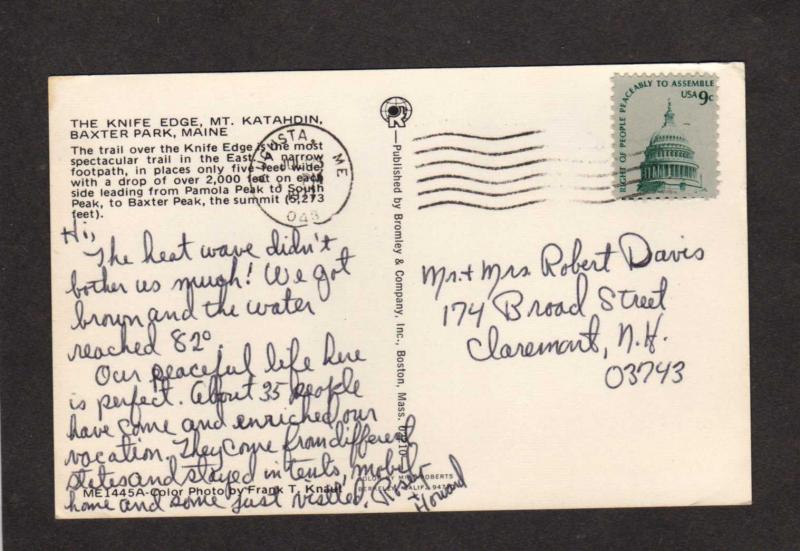 THE KNIFE EDGE, MT. KATAHDIN,
BAXTER PARK, MAINE
The trail over the Knife Edge is the most
spectacular trail in the East. A narrow
footpath, in places only five feet wide,
with a drop of over 2,000 feet on each
side leading from Pamola Peak to South
Peak, to Baxter Peak, the summit (5,273
feet).
Hi,
The heat wave didn't
bother us mugh! We got
brown and the water
reached 82°.
Our peaceful life here
is perfect. About 35 people
have come and enriched our
vacation. They come from different
states and stayed in tents, mobil
home and some just visited.
+ Howard
ME1445A-Color Photo by Frank T. Knaut
AUGUSTA, ME
—Published by Bromley & Company, Inc., Boston, Mass.
ROBERTS
RIGHT OF PEOPLE PEACEABLY TO ASSEMBLE
USA 9c
Mr. + Mrs. Robert Davis
174 Broad Street
Claremont, N.H.
03743